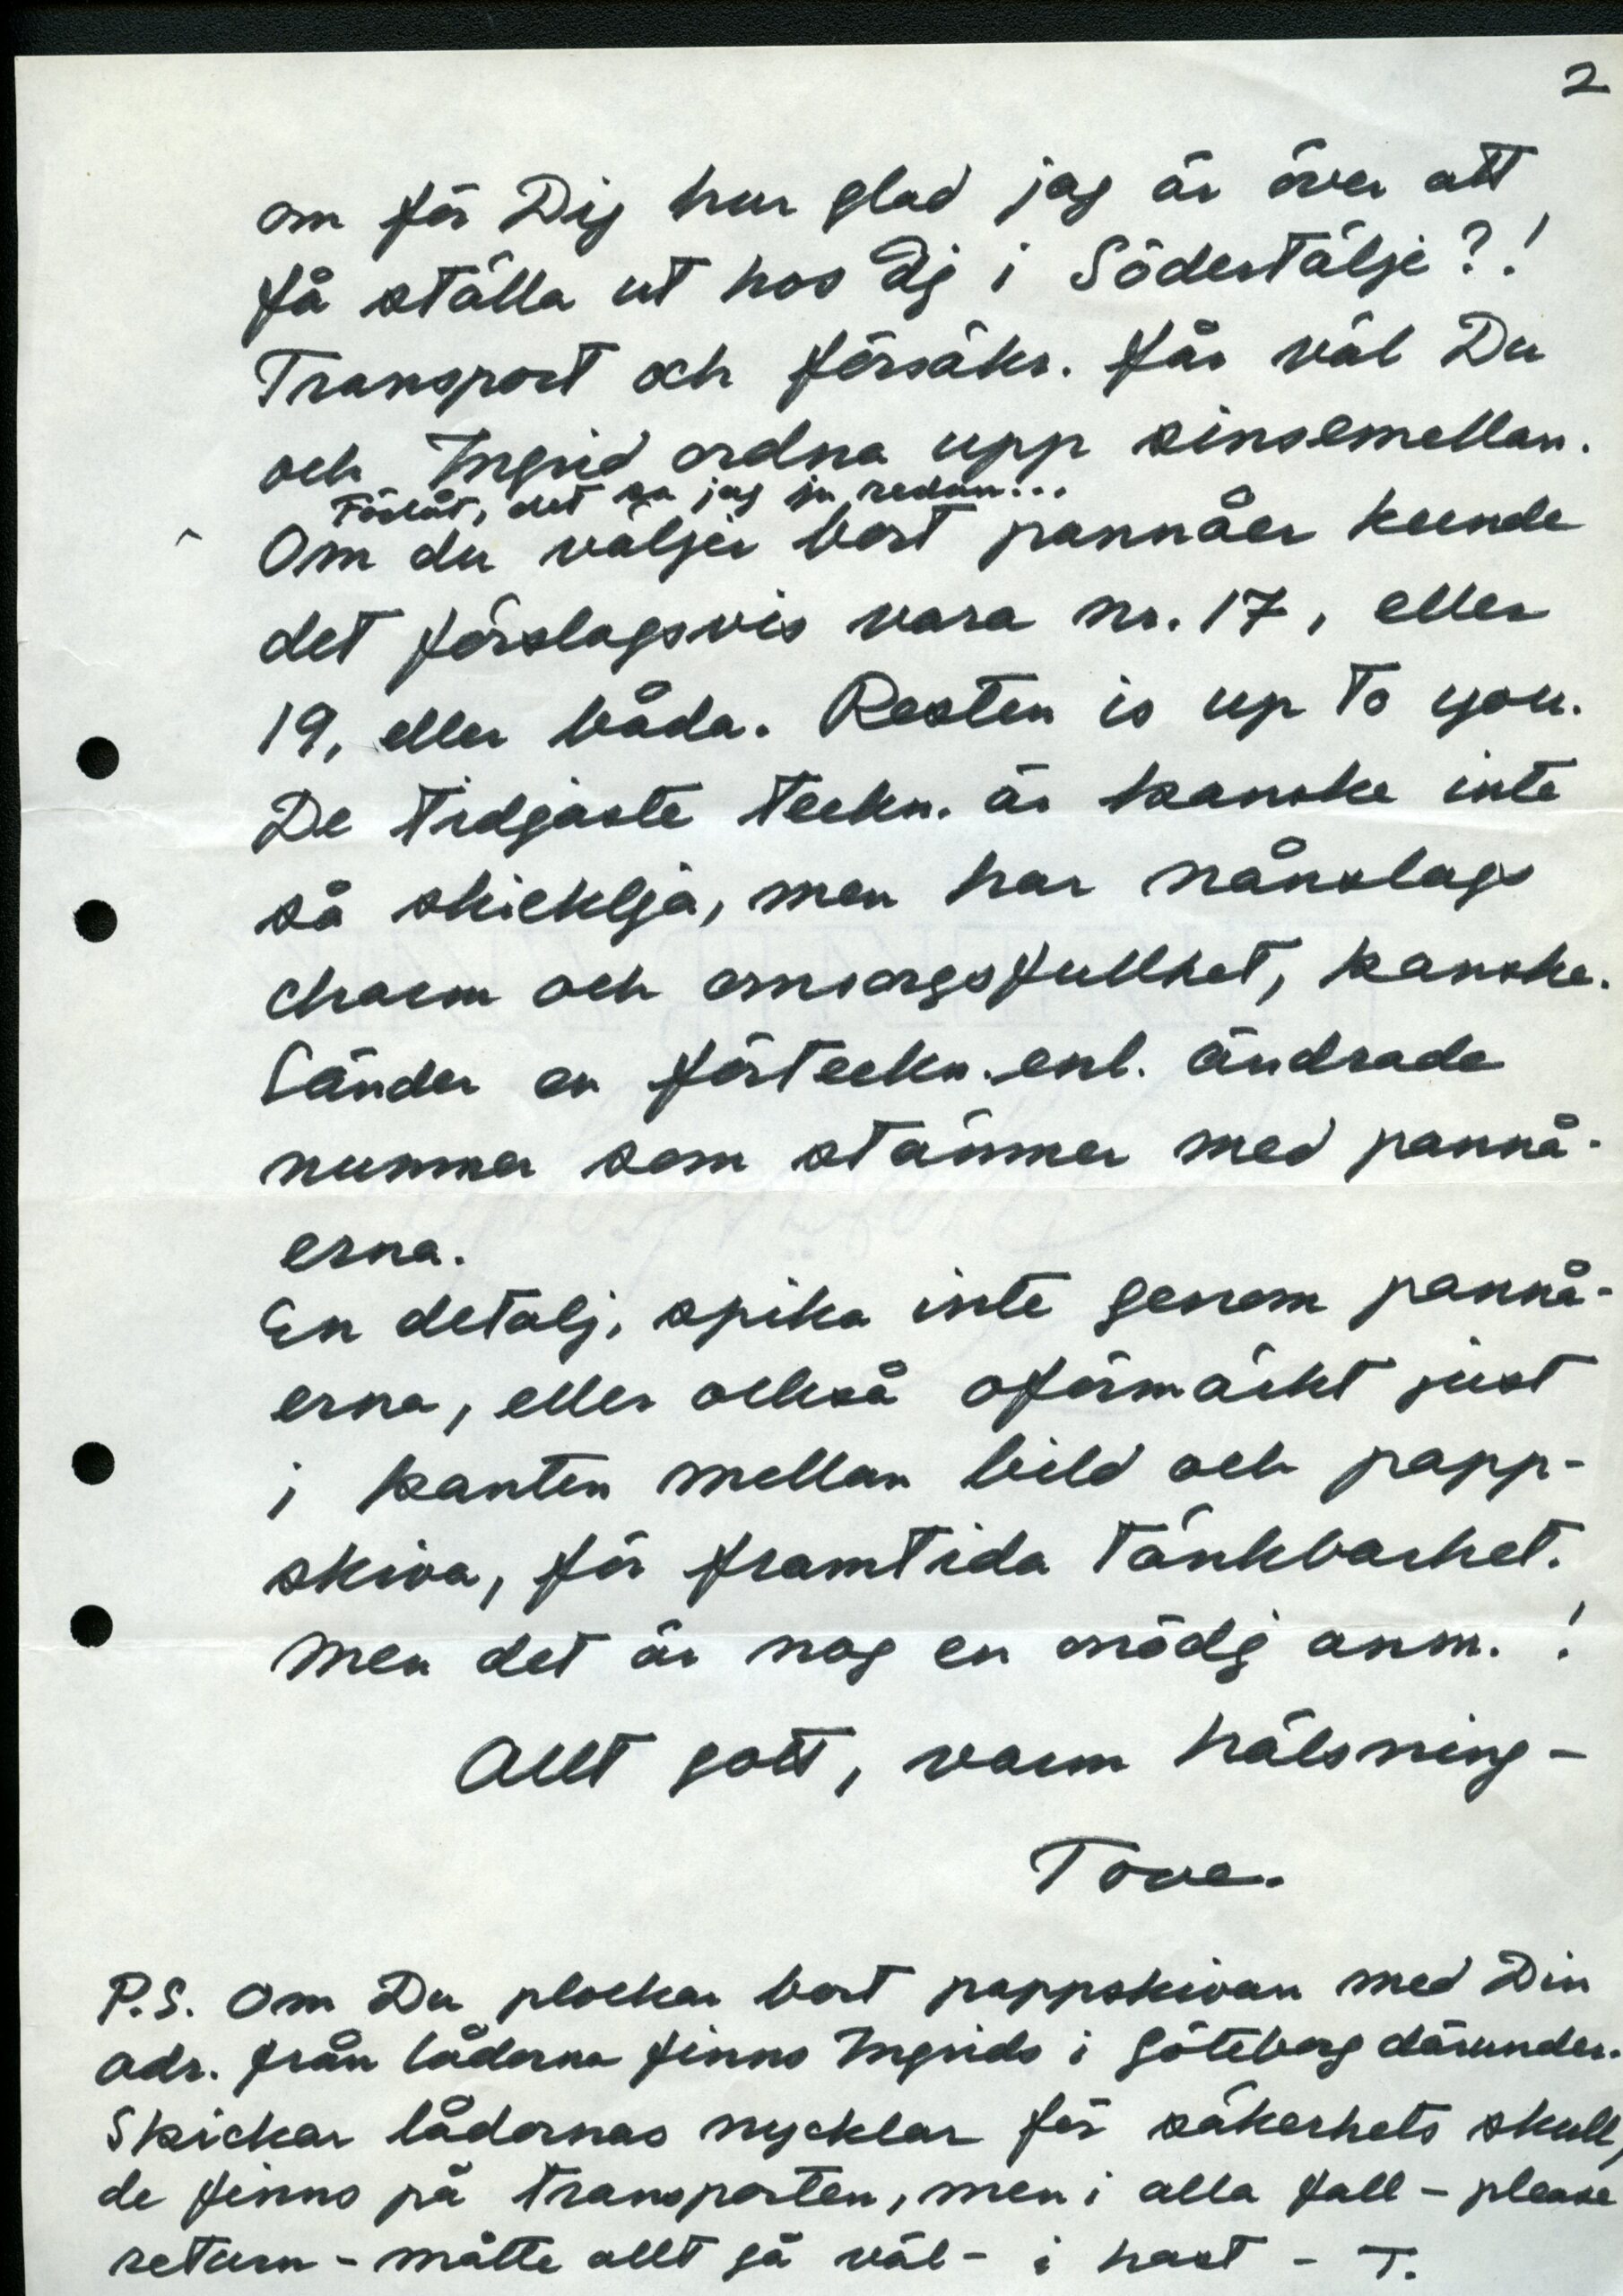 2
om för Dig hur glad jag är över att
få ställa ut hos Dig i Södertälje?!
Transport och försäkr. får väl Du
och Ingrid ordna upp sinsemellan.
Förlåt, det sa jag ju redan...
Om du väljer bort pannåer kunde
det förslagsvis vara nr. 17, eller
19, eller båda. Resten is up to you.
De tidigaste teckn. är kanske inte
så skickliga, men har nånslags
charm och omsorgsfullhet, kanske.
Sänder en förteckn. enl. ändrade
nummer som stämmer med pannå-
erna.
En detalj, spika inte genom pannå-
erna, eller också oförmärkt just
i kanten mellan bild och papp-
skiva, för framtida tänkbarhet.
Men det är nog en onödig anm. !
Allt gott, varm hälsning –
Tove.
P.S. Om Du plockar bort pappskivan med Din
adr. från lådorna finns Ingrids i Göteborg därunder.
Skickar lådornas nycklar för säkerhets skull,
de finns på transporten, men i alla fall – please
return – måtte allt gå väl – i hast – T.